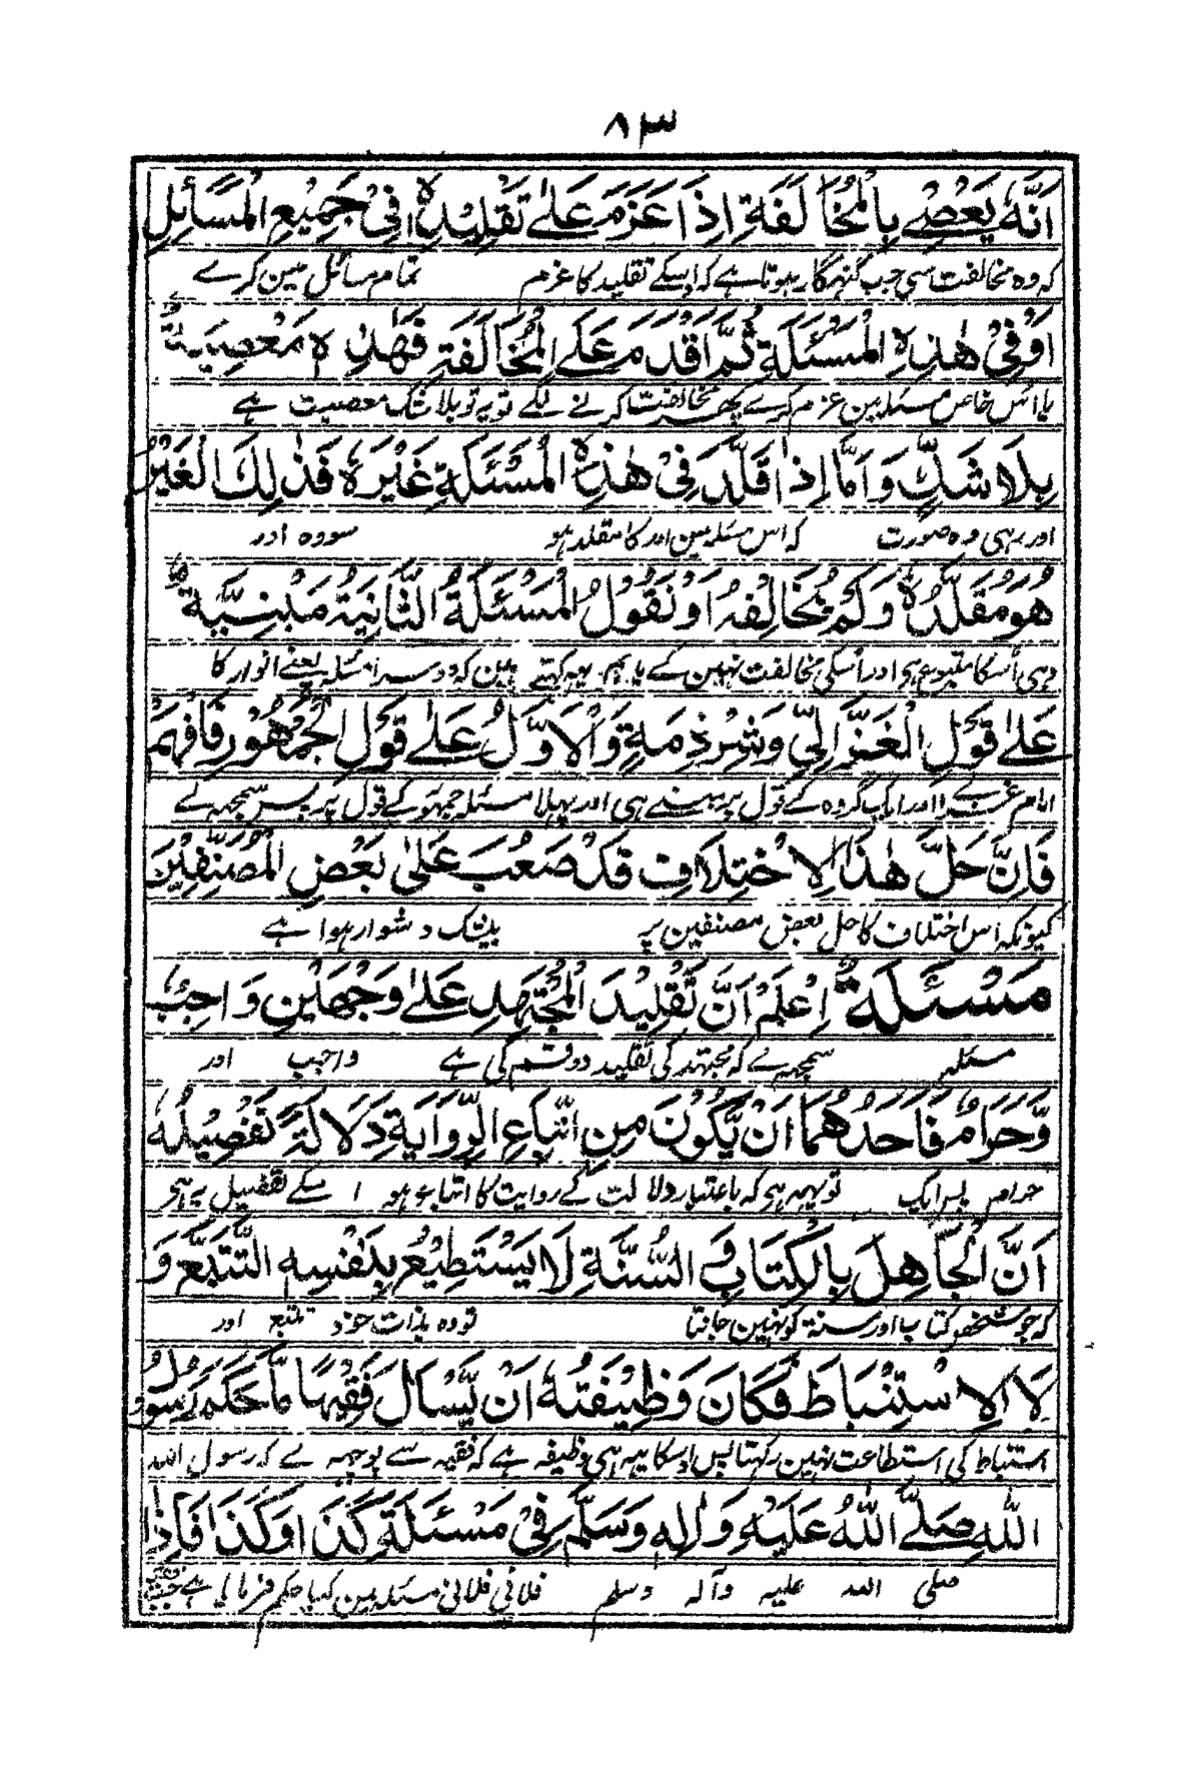 ٨٣
اَنَّهٗ يَعْصِے بِالْمُخَالَفَةِ اِذَا عَزَمَ عَلٰے تَقْلِيْدِهٖ فِیْ جَمِيْعِ الْمَسَائِلِ
کہ وہ مخالفت سی جب گنہگار ہوتا ہے کہ اسکے تقلید کا عزم تمام مسائل مین کرے
اَوْ فِیْ هٰذِهِ الْمَسْئَلَةِ ثُمَّ اَقْدَمَ عَلَے الْمُخَالَفَةِ فَهٰذِهٖ مَعْصِيَةٌ
یا اس خاص مسئلہ مین عزم کرے پھر مخالفت کرنے لگے تو یہ تو بلا شک معصیت ہے
بِلَا شَكٍّ وَاَمَّا اِذَا قَلَّدَ فِیْ هٰذِهِ الْمَسْئَلَةِ غَيْرَهٗ فَذٰلِكَ الْغَيْرُ
اور رہی وہ صورت کہ اس مسئلہ مین اور کا مقلد ہو سو وہ اور
هُوَ مُقَلَّدُهٗ وَلَمْ يُخَالِفْهُ اَوْ نَقُوْلُ الْمَسْئَلَةُ الثَّانِيَةُ مَبْنِيَّةٌ
وہی اُسکا متبوع ہی اور اُسکی مخالفت نہین کے یا ہم یہ کہتے ہین کہ دوسرا مسئلہ یعنے انوار کا
عَلٰے قَوْلِ الْغَزَّالِیِّ وَشِرْذِمَةٍ وَالْاَوَّلُ عَلٰے قَوْلِ الْجُمْهُوْرِ فَافْهَمْ
امام غزالے اور ایک گروہ کے قول پر مبنے ہی اور پہلا مسئلہ جمہور کے قول پر پس سمجہہ لے
فَاِنَّ حَلَّ هٰذَا الْاِخْتِلَافِ قَدْ صَعُبَ عَلٰى بَعْضِ الْمُصَنِّفِيْنَ
کیونکہ اس اختلاف کا حل بعض مصنفین پر بیشک دشوار ہوا ہے
مَسْئَلَةٌ اِعْلَمْ اَنَّ تَقْلِيْدَ الْمُجْتَهِدِ عَلٰے وَجْهَيْنِ وَاجِبٌ
مسئلہ سمجہہ لے کہ مجتہد کی تقلید دو قسم کی ہے واجب اور
وَّحَرَامٌ فَاَحَدُهُمَا اَنْ يَّكُوْنَ مِنِ اتِّبَاعِ الرِّوَايَةِ دَلَالَةً تَفْصِيْلُهٗ
حرام پس ایک تو یہہ ہی کہ باعتبار دلالت کے روایت کا اتباع ہو اسکے تفصیل یہ ہی
اَنَّ الْجَاهِلَ بِالْكِتَابِ وَالسُّنَّةِ لَا يَسْتَطِيْعُ بِنَفْسِهِ التَّتَبُّعَ وَ
کہ جو شخص کتاب اور سنۃ کو نہین جانتا تو وہ بذات خود تتبع اور
لَا الْاِسْتِنْبَاطَ فَكَانَ وَظِيْفَتُهٗ اَنْ يَّسْاَلَ فَقِيْهًا مَّا حَكَمَ رَسُوْلُ
استنباط کی استطاعت نہین رکہتا پس اسکا یہہ ہی وظیفہ ہے کہ فقیہ سے پوچہہ لے کہ رسول اللہ
اللهِ صَلَّے اللهُ عَلَيْهِ وَاٰلِهٖ وَسَلَّمَ فِیْ مَسْئَلَةِ كَذَا وَكَذَا فَاِذَا
صلی اللہ علیہ وآلہ وسلم فلانی فلانی مسئلہ مین کیا حکم فرمایا ہے